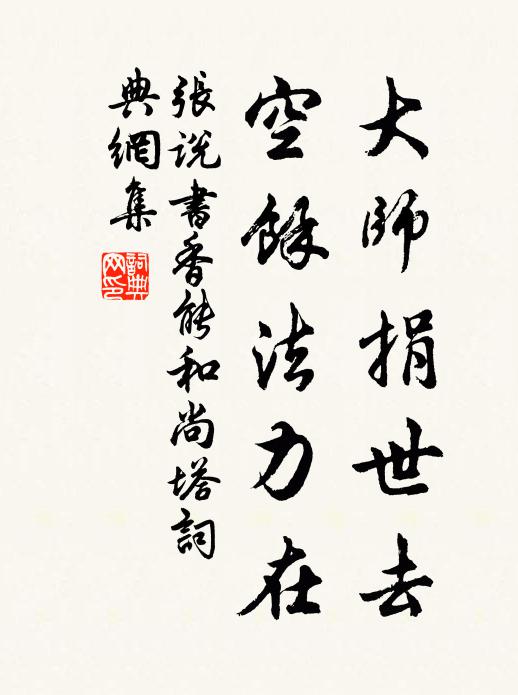 大師捐世去
空餘法力在
張說書香能和尚塔詞
典網集
詞典網印